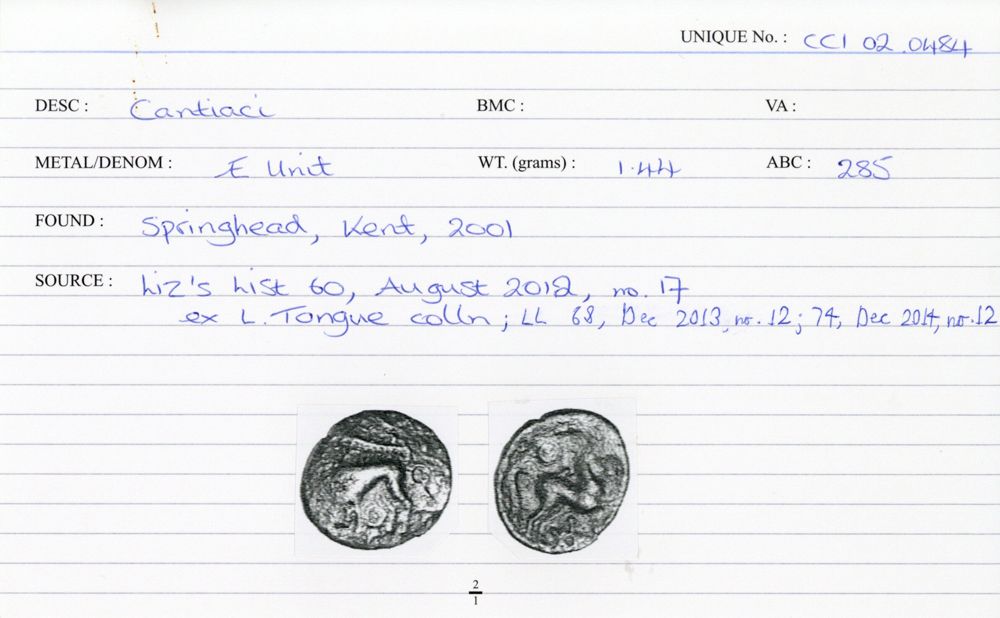 UNIQUE No. : CCI 02.0484
DESC : Cantiaci BMC : VA :
METAL/DENOM : Æ Unit WT. (grams) : 1.44 ABC : 285
FOUND : Springhead, Kent, 2001
SOURCE : Liz's List 60, August 2012, no. 17
ex L. Tongue colln ; LL 68, Dec 2013, no. 12 ; 74, Dec 2014, no. 12
2
1